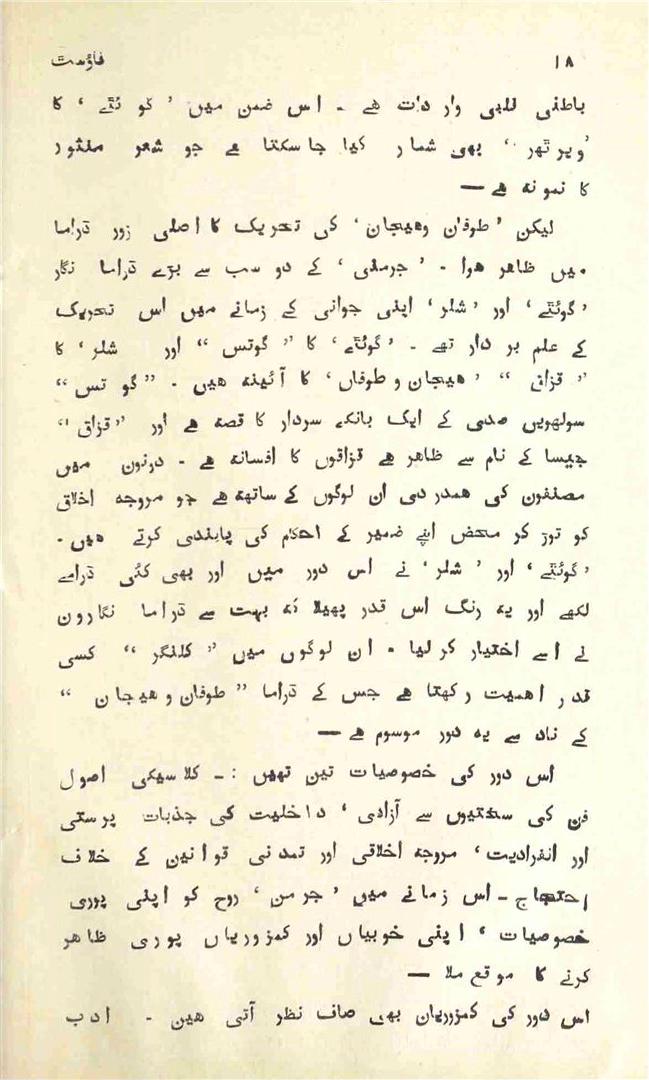 ۱۸ فاؤسٹ
باطنی قلبی واردات ہے ۔ اس ضمن میں ’ گوئٹے ‘ کا
’ویرتھر‘ بھی شمار کیا جاسکتا ہے جو شعر منثور
کا نمونہ ہے —
لیکن ’طوفان وہیجان‘ کی تحریک کا اصلی زور ڈراما
میں ظاہر ہوا ۔ ’جرمنی‘ کے دو سب سے بڑے ڈراما نگار
’گوئٹے‘ اور ’شلر‘ اپنی جوانی کے زمانے میں اس تحریک
کے علم بردار تھے ۔ ’گوئٹے‘ کا ”گوتس“ اور شلر‘ کا
”قزاق“ ’ہیجان و طوفاں‘ کا آئینہ ہیں ۔ ”گوتس“
سولھویں صدی کے ایک بانکے سردار کا قصہ ہے اور ”قزاق“
جیسا کے نام سے ظاہر ہے قزاقوں کا افسانہ ہے ۔ درنوں میں
مصنفوں کی ہمدردی ان لوگوں کے ساتھ ہے جو مروجہ اخلاق
کو توڑ کر محض اپنے ضمیر کے احکام کی پابندی کرتے ہیں ۔
’گوئٹے‘ اور ’شلر‘ نے اس دور میں اور بھی کئی ڈرامے
لکھے اور یہ رنگ اس قدر پھیلا کہ بہت سے ڈراما نگارون
نے اسے اختیار کرلیا ۔ ان لوگوں میں ”کلنگر“ کسی
قدر اہمیت رکھتا ہے جس کے ڈراما ”طوفان وہیجان“
کے ناد سے یہ دور موسوم ہے —
اس دور کی خصوصیات تین تھیں :۔ کلاسیکی اصول
فن کی سختیوں سے آزادی ‘ داخلیت کی جذبات پرستی
اور انفرادیت‘ مروجہ اخلاقی اور تمدنی قوانین کے خلاف
احتجاج ۔ اس زمانے میں ’جرمن‘ روح کو اپنی پوری
خصوصیات ‘ اپنی خوبیاں اور کمزوریاں پوری ظاہر
کرنے کا موقع ملا —
اس دور کی کمزوریان بھی صاف نظر آتی ہین ۔ ادب